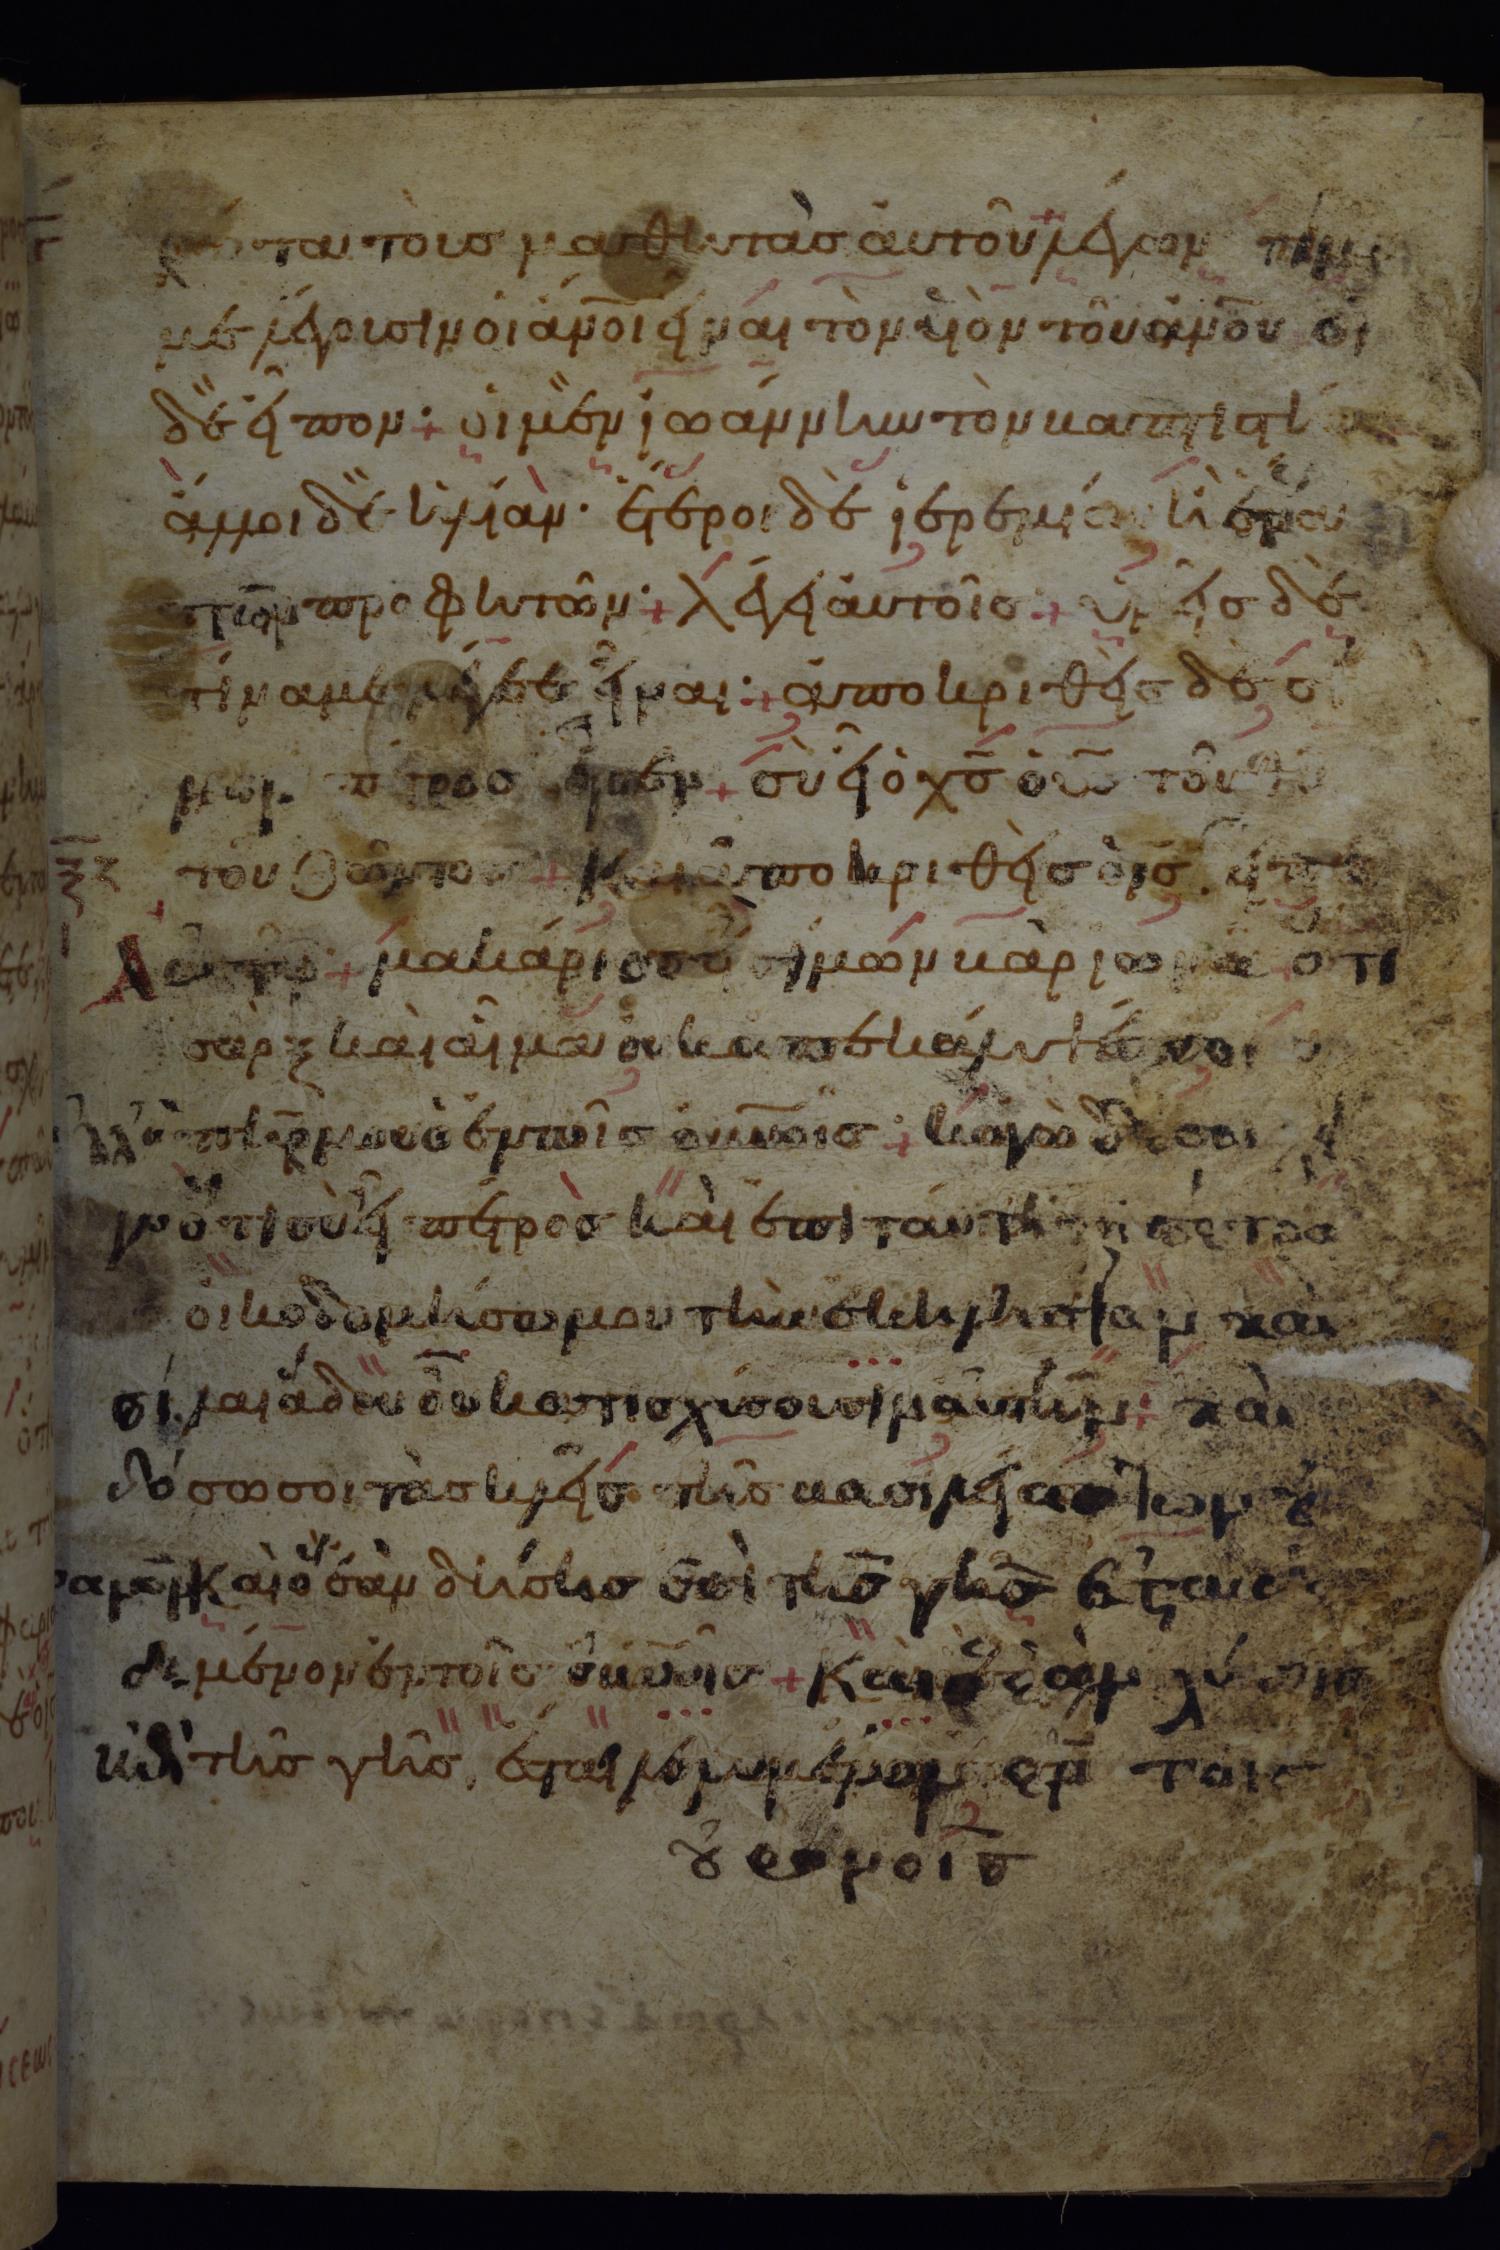 ρώτα τοὺσ μαθητὰσ ἀυτοῦ λέγων τίνα
με λέγουσιν οἱ ἄνοι εἶναι τὸν υἱὸν τοῦ ἀνου οἱ
δὲ εἶπον· οἱ μὲν ἰωάννην τὸν βαπτιστὴ
ἄλλοι δὲ ἠλίαν· ἕτεροι δὲ ἱερεμίαν ἢ ἕνα
τῶν προφητῶν· λέγει ἀυτοῖσ + ὑμεῖσ δὲ
τίνα με λέγετε εἶναι· ἀποκριθεὶσ δὲ σι
μων πέτροσ εἶπεν + σὺ εἶ ὁ χσ ὁ υσ τοῦ θυ
τοῦ ζῶντοσ + Και ἀποκριθεὶσ ὁ ισ εἶπεν
Αυτῶ + μακάριοσ εἶ σίμων βὰριωνα + οτι
σὰρξ καὶ αἷμα οὐκ απεκάλυψέ σοι
ἀλλ' ὁ πηρ μου ὁ ἐν τοῖσ οὐνοισ + κἀγὼ δε σοι λέ
γω ὅτι σὺ εἶ πέτροσ καὶ ἐπι ταύτη τη πετρα
οἰκοδομήσω μου τὴν ἐκκλησίαν και
πύλαι ἅδου οὐ κατισχύσουσιν αὐτῆσ + και
δώσω σοι τὰσ κλεῖσ τῆσ βασιλείασ των ου
ρανῶν Καὶ ὃ ἐὰν δήσησ ἐπὶ τῆσ γῆσ ἔσται δε
δεμένον ἐν τοῖσ οὐνοισ + Καὶ ὃ ἐὰν λύσησ
ἐπὶ τῆσ γῆσ, ἔσται λελυμένον ἐν τοισ
οὐρανοῖσ